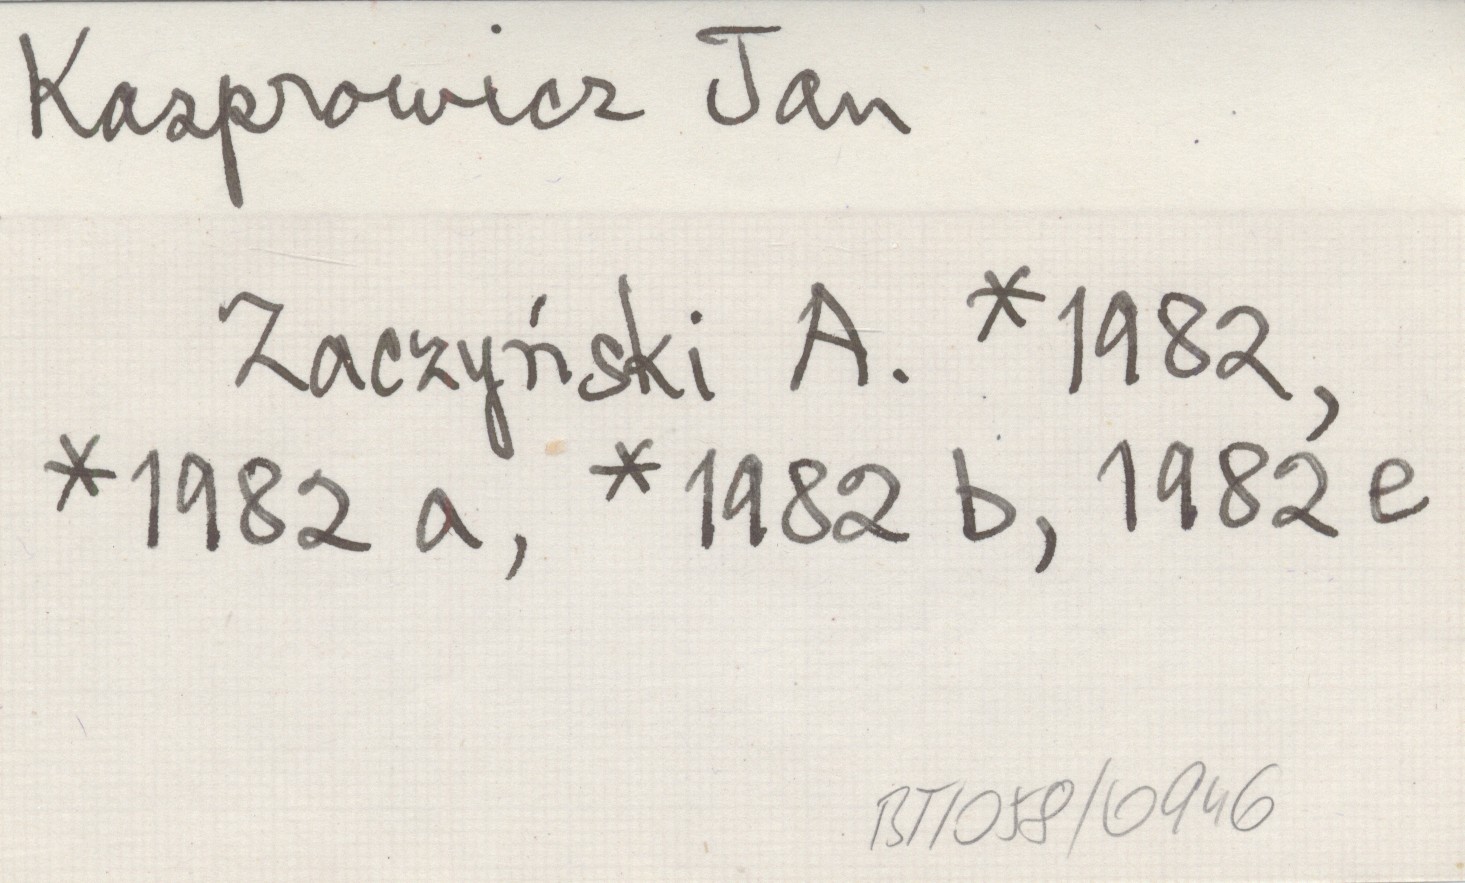 Kasprowicz Jan
Zaczyński A. *1982,
*1982 a, *1982 b, 1982 e
BT/058/0946